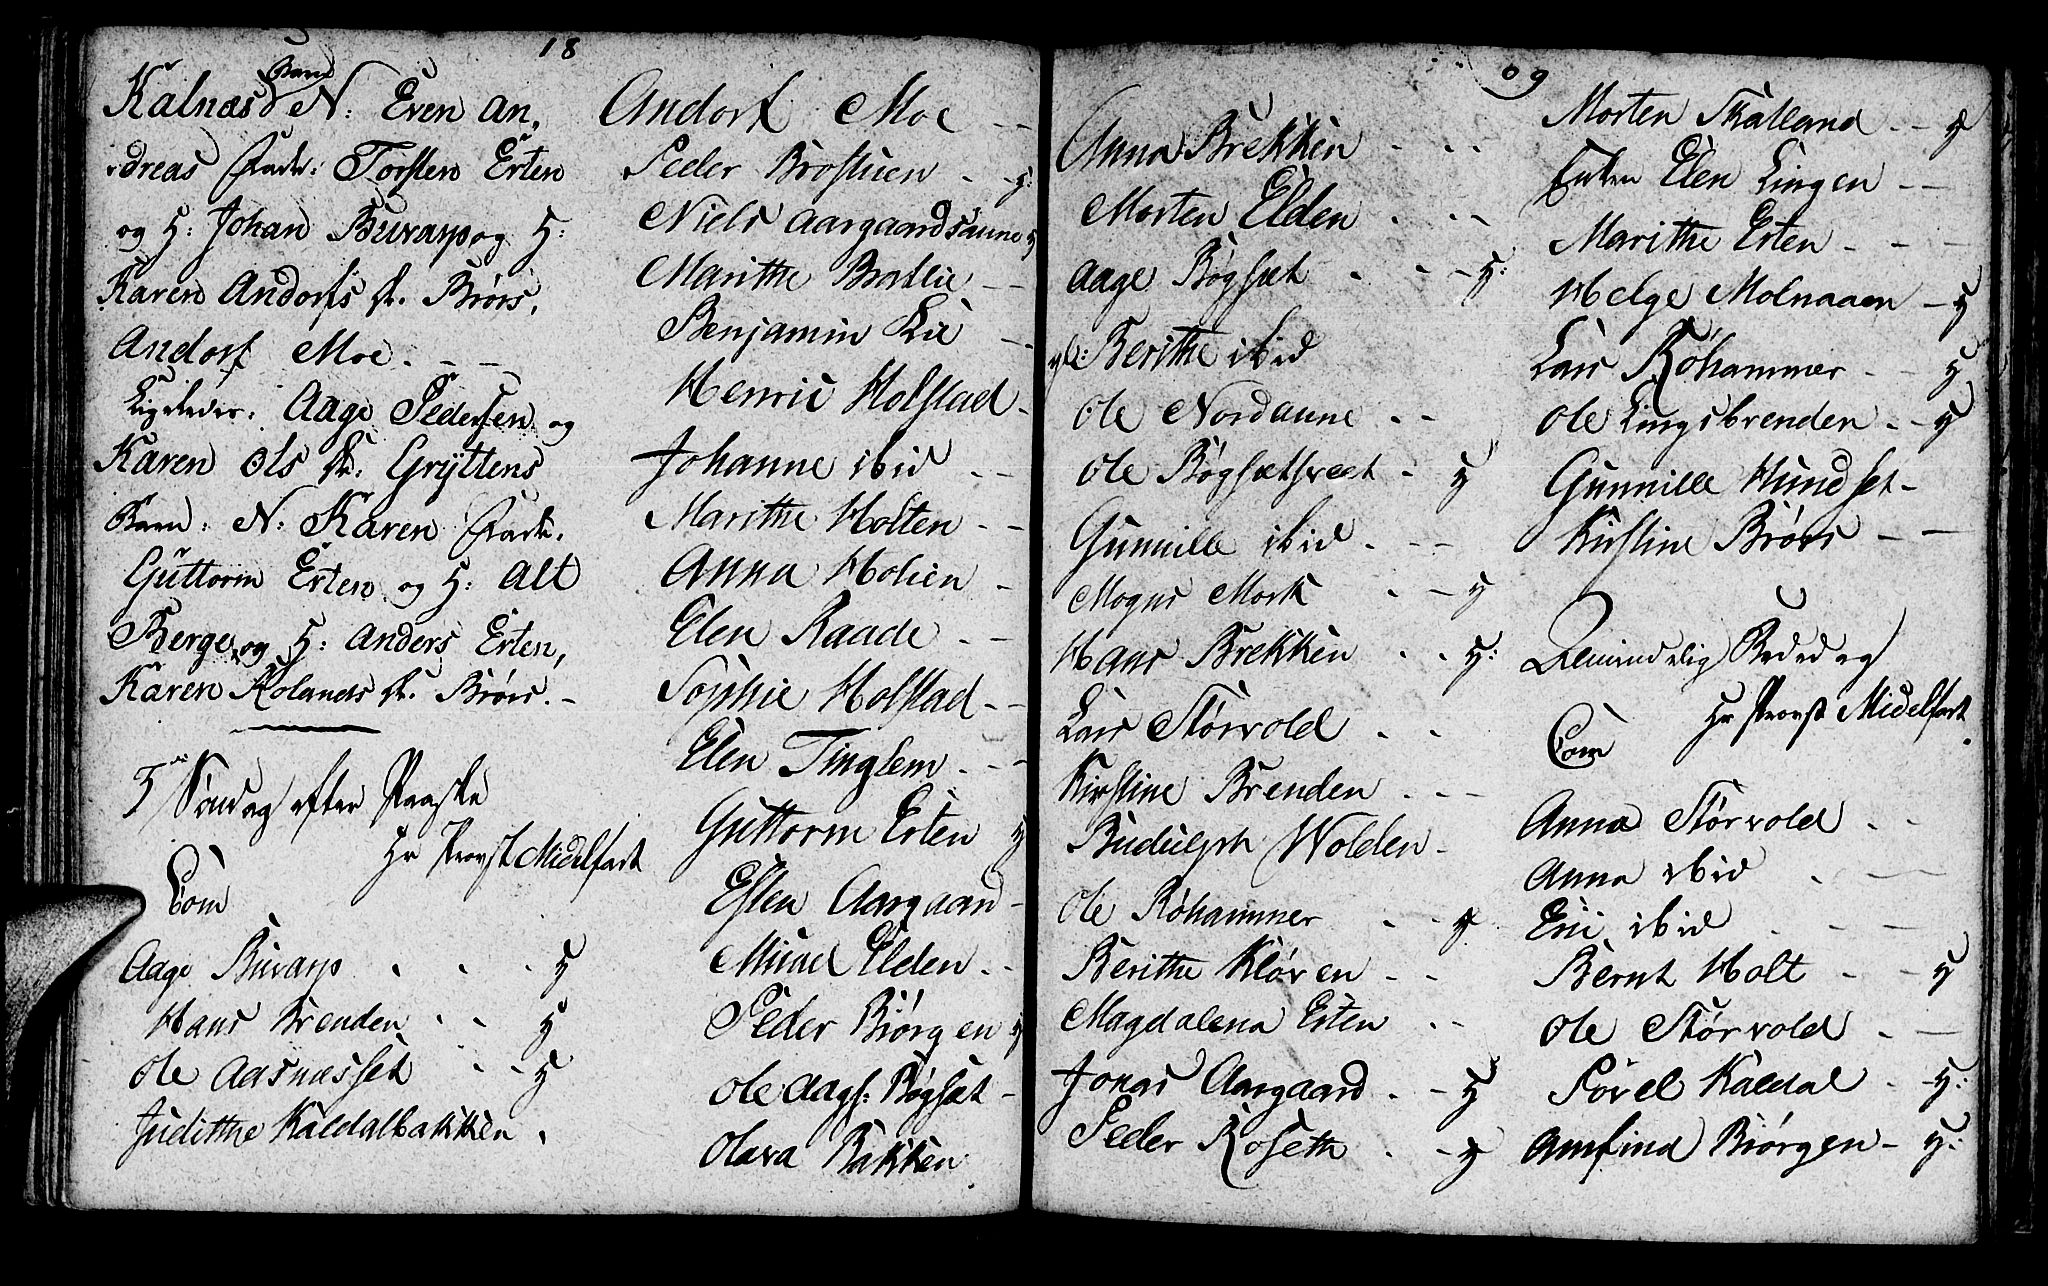 18
Barn
Kalnæs N: Even An,
dreas Fad: Torsten Erten
og H: Johan Buvarp og H:
Karen Andorfs d. Børs.
Andorf Moe. - -
Ligeledes: Aage Pedersen og
Karen Ols d: Gryttens
Barn: N: Karen Fad:
Guttorm Erten og H: Alt
Berge og H: Anders Erten,
Karen Rolands d. Børs. -
5 Søndag efter Paaske
Hr Provst Midelfart
Com
Aage Buvarp . . . H
Hans Brenden . . H
Ole Aasnæsset . . H
Judithe Kaldalbakken .
Andorf Moe - -
Peder Brostuen . - H:
Niels Aargaardsaune H
Marithe Bratlie - -
Benjamin Lie - -
Henric Holstad -
Johanne ibid - -
Marithe Holten - -
Anna Holien -
Elen Raade . - -
Sophie Holstad - -
Elen Tinglem . - -
Guttorm Erten H
Esten Aargaard -
Micael Elden . -
Peder Biørgen H
Ole Aags: Bøgset -
Olava Bakken .
09
Anna Brekken . . .
Morten Elden . - -
Aage Bøgset . . - H:
Berithe ibid
Ole Nordaune . -
Ole Bøgsetsvedt - H
Gunnille ibid . - -
Mogns Mork . - H
Hans Brekken . . H:
Lars Størvold . .
Kirstine Brenden . - -
Budulph Wolden -
Ole Røhammer . - H
Berithe Kløven . -
Magdalena Erten . -
Jonas Aargaard . - H
Peder Roseth . - H
Morten Skatland . - H
Enken Elen Lingen - -
Marithe Erten - - -
Helge Molnaaen - H
Lars Røhammer . - H
Ole Lingsbrenden - H
Gunnille Hundset -
Kirstine Børs - -
Almindelig Bededag
Hr Provst Midelfart.
Com
Anna Størvold . -
Anna ibid . - -
Eri ibid . - -
Bernt Holt - - H
Ole Størvold . -
Povel Kaldal . - H:
Amfind Biørgen - H: